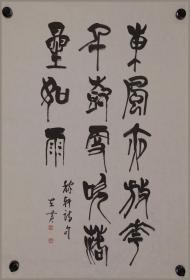 東風夜放花
千樹更吹落
星如雨
稼軒詩句